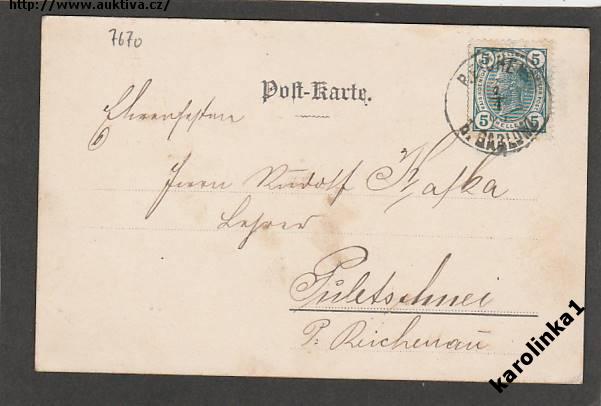 http://www.auktiva.cz/
7670
Post-Karte.
5 5
5 HELLER 5
B. GABLONZ
Ehrenfesten
Herrn Rudolf Kafka
Lehrer
Puletschnei
P. Reichenau
karolinka1